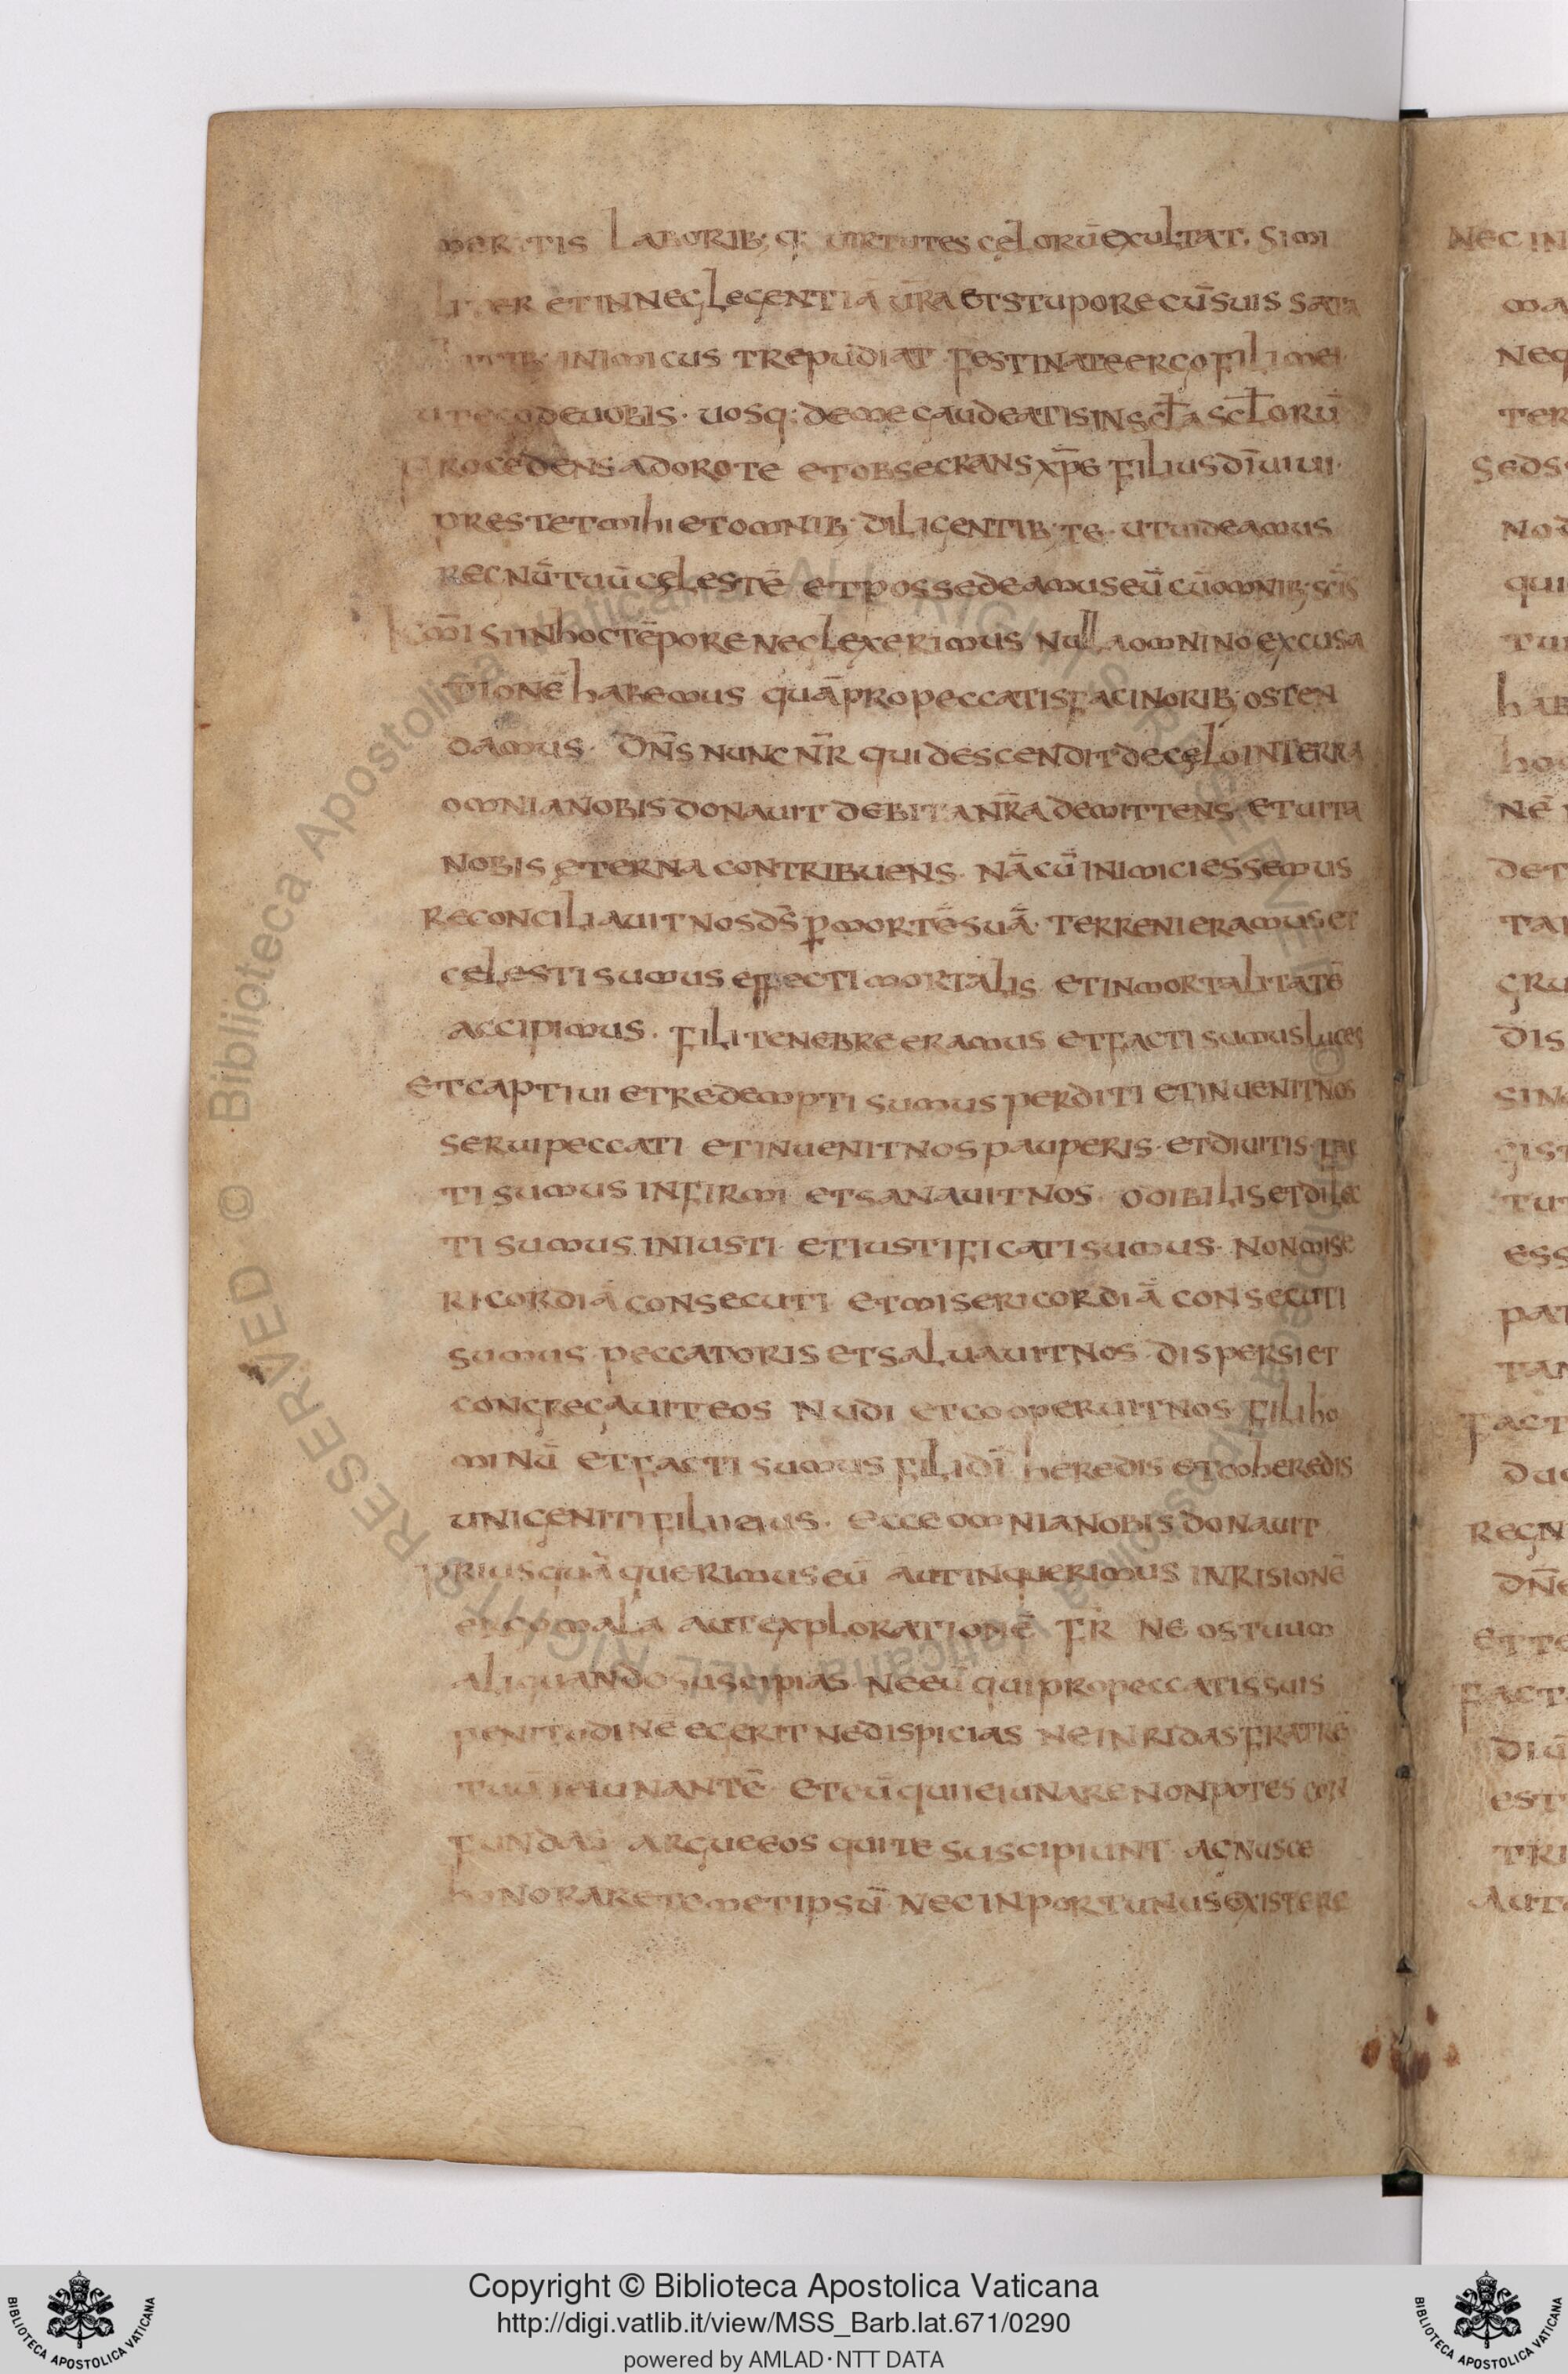 meritis laborib; q; uirtutes celorū excultat. simi
liter et in neglegentiā ūra et stupore cū suis sata
litib; inimicus trepudiat festinate ergo fili mei
ut ego de uobis. uosq; de me gaudeatis in scla sclorū
procedens adoro te et obsecrans xpe filius dī uiui.
prestet mihi et omnib; diligentib; te. ut uideamus
regnū tuū celestē et possedeamus eū cū omnib; scīs
si in hoc tēpore neglexerimus nulla omnino excusa
tionē habemus quā pro peccatis facinorib; osten
damus. dn̄s nunc nr̄ qui descendit de celo in terra
omnia nobis donauit debita nr̄a demittens et uita
nobis eterna contribuens. nā cū inimici essemus
reconciliauit nos ds̄ p̱ mortē suā. terreni eramus et
celesti sumus effecti mortalis et inmortalitatē
accipimus. fili tenebre eramus et facti sumus luces
et captiui et redempti sumus perditi et inuenit nos
serui peccati et inuenit nos pauperis. et diuitis fac
ti sumus infirmi et sanauit nos. odibilis et dilec
ti sumus iniusti et iustificati sumus. non mise
ricordiā consecuti et misericordiā consecuti
sumus peccatoris et saluauit nos. dispersi et
congregauit eos nudi et cooperuit nos fili ho
minū et facti sumus fili dī heredis et coheredis
unigeniti filii eius. ecce omnia nobis donauit
priusquā querimus eū aut inquerimus inrisionē
ergo mala aut explorationē fr̄ ne os tuum
aliquando suscipias. ne eū qui pro peccatis suis
penitudinē egerit ne dispicias ne inridas fratrē
tuū ieiunantē et cū qui ieiunare non potes con
fundas argue eos qui te suscipiunt agnusce
honorare temetipsū nec inportunus existere
NEC IN
ma
neq
ter
seds
qui
tui
hab
det
tar
gru
dis
tut
ess
pat
tan
fact
duc
regn
dn̄e
ette
fact
est
tri
aut
Copyright © Biblioteca Apostolica Vaticana
http://digi.vatlib.it/view/MSS_Barb.lat.671/0290
powered by AMLAD·NTT DATA
BIBLIOTECA APOSTOLICA VATICANA
BIBLIOTECA APOSTOLICA VATICANA